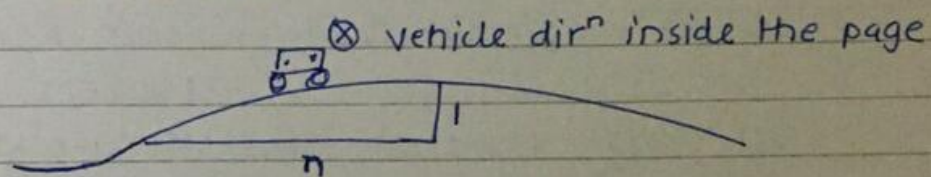 ⊗ vehicle dirⁿ inside the page
1
n